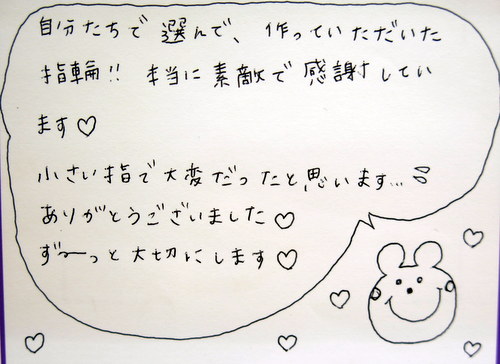 自分たちで選んで、作っていただいた
指輪!! 本当に素敵で感謝してい
ます♡
小さい指で大変だったと思います...
ありがとうございました♡
ず〜っと大切にします♡